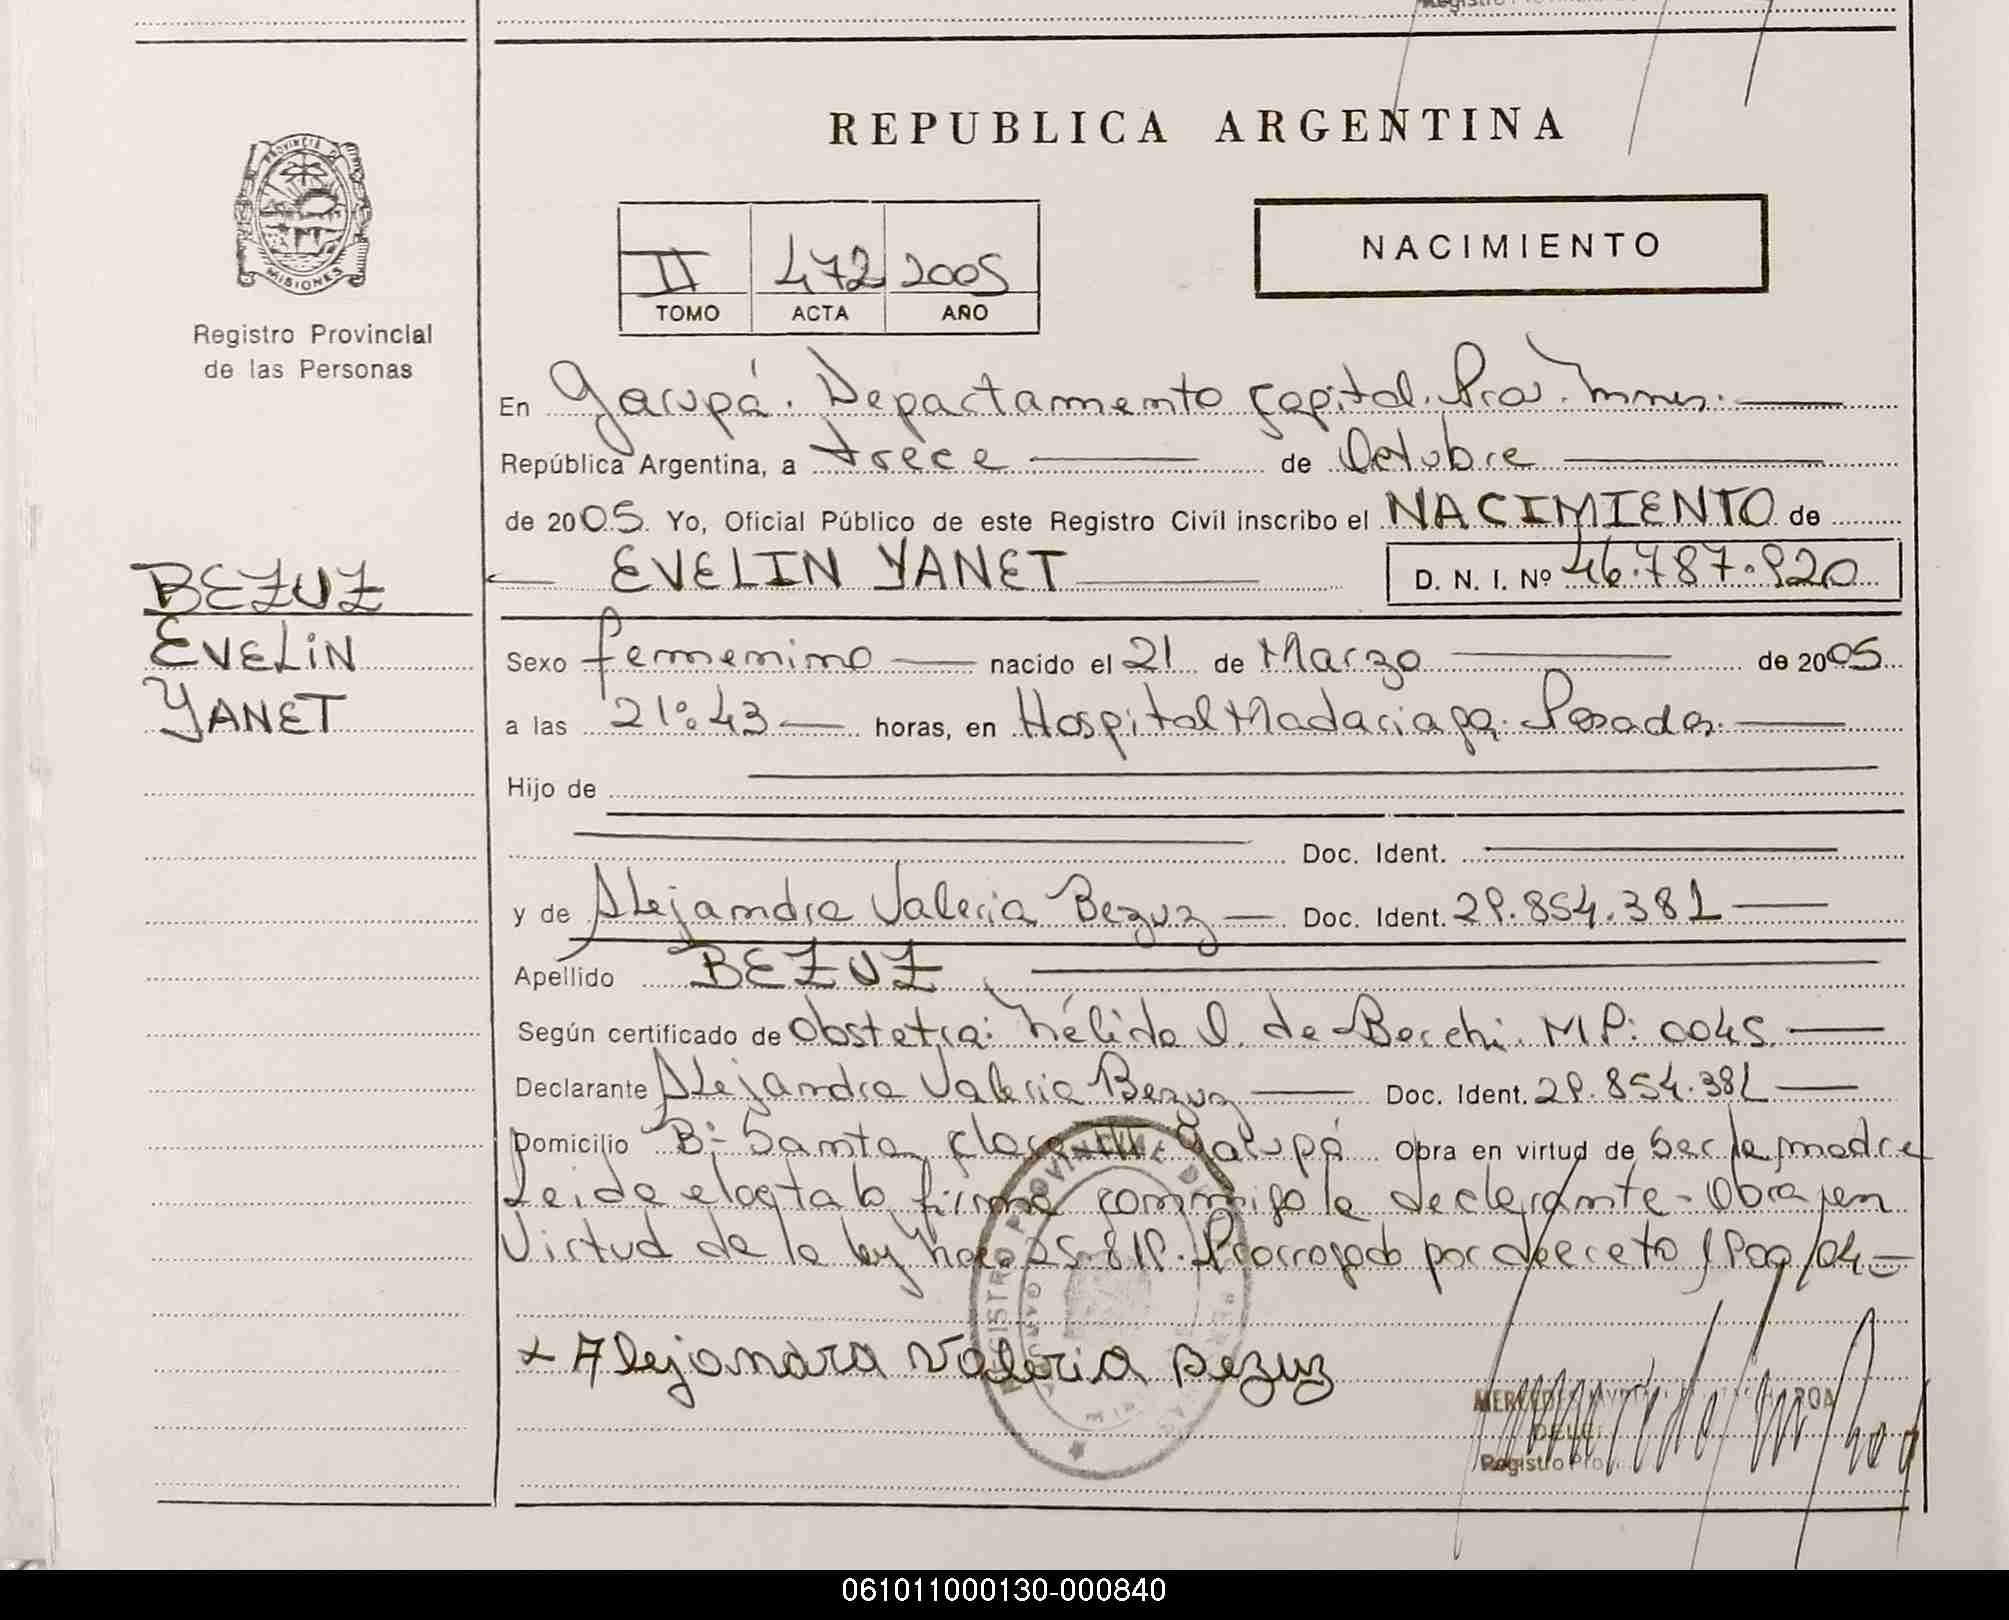 REPUBLICA ARGENTINA
PROVINCIA DE
MISIONES
Registro Provincial
de las Personas
II 472 2005
TOMO ACTA AÑO
NACIMIENTO
En Garupá. Departamento Capital. Prov. Mnes.
República Argentina, a trece de Octubre
de 2005. Yo, Oficial Público de este Registro Civil inscribo el NACIMIENTO de
EVELIN YANET D. N. I. Nº 46.787.920
BEZUZ
EVELIN
YANET
Sexo femenino nacido el 21 de Marzo de 2005
a las 21:43 horas, en Hospital Madariaga. Posadas.
Hijo de
Doc. Ident.
y de Alejandra Valeria Bezuz Doc. Ident. 29.854.381
Apellido BEZUZ
Según certificado de Obstetra: Nélida de Bocchi. MP: 0045.
Declarante Alejandra Valeria Bezuz Doc. Ident. 29.854.381
Domicilio Bº Santa Clara III Garupá Obra en virtud de ser la madre
Leida el acta la firma conmigo la declarante - Obra en
Virtud de la ley 25.819. Prorrogado por decreto
x Alejandra Valeria Bezuz
REGISTRO PROVINCIAL DE
MERCEDES ROA
DELE
Registro Prov
061011000130-000840